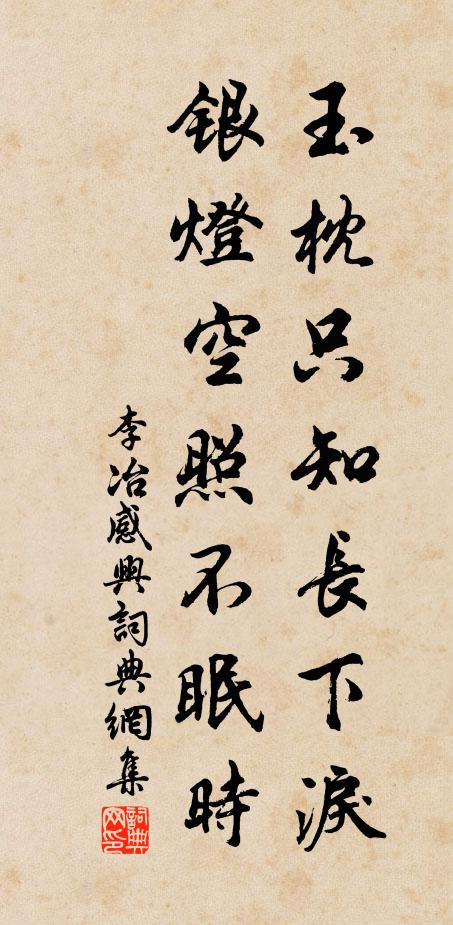 玉枕只知長下淚
銀燈空照不眠時
李冶感興詞典網集
詞典网印